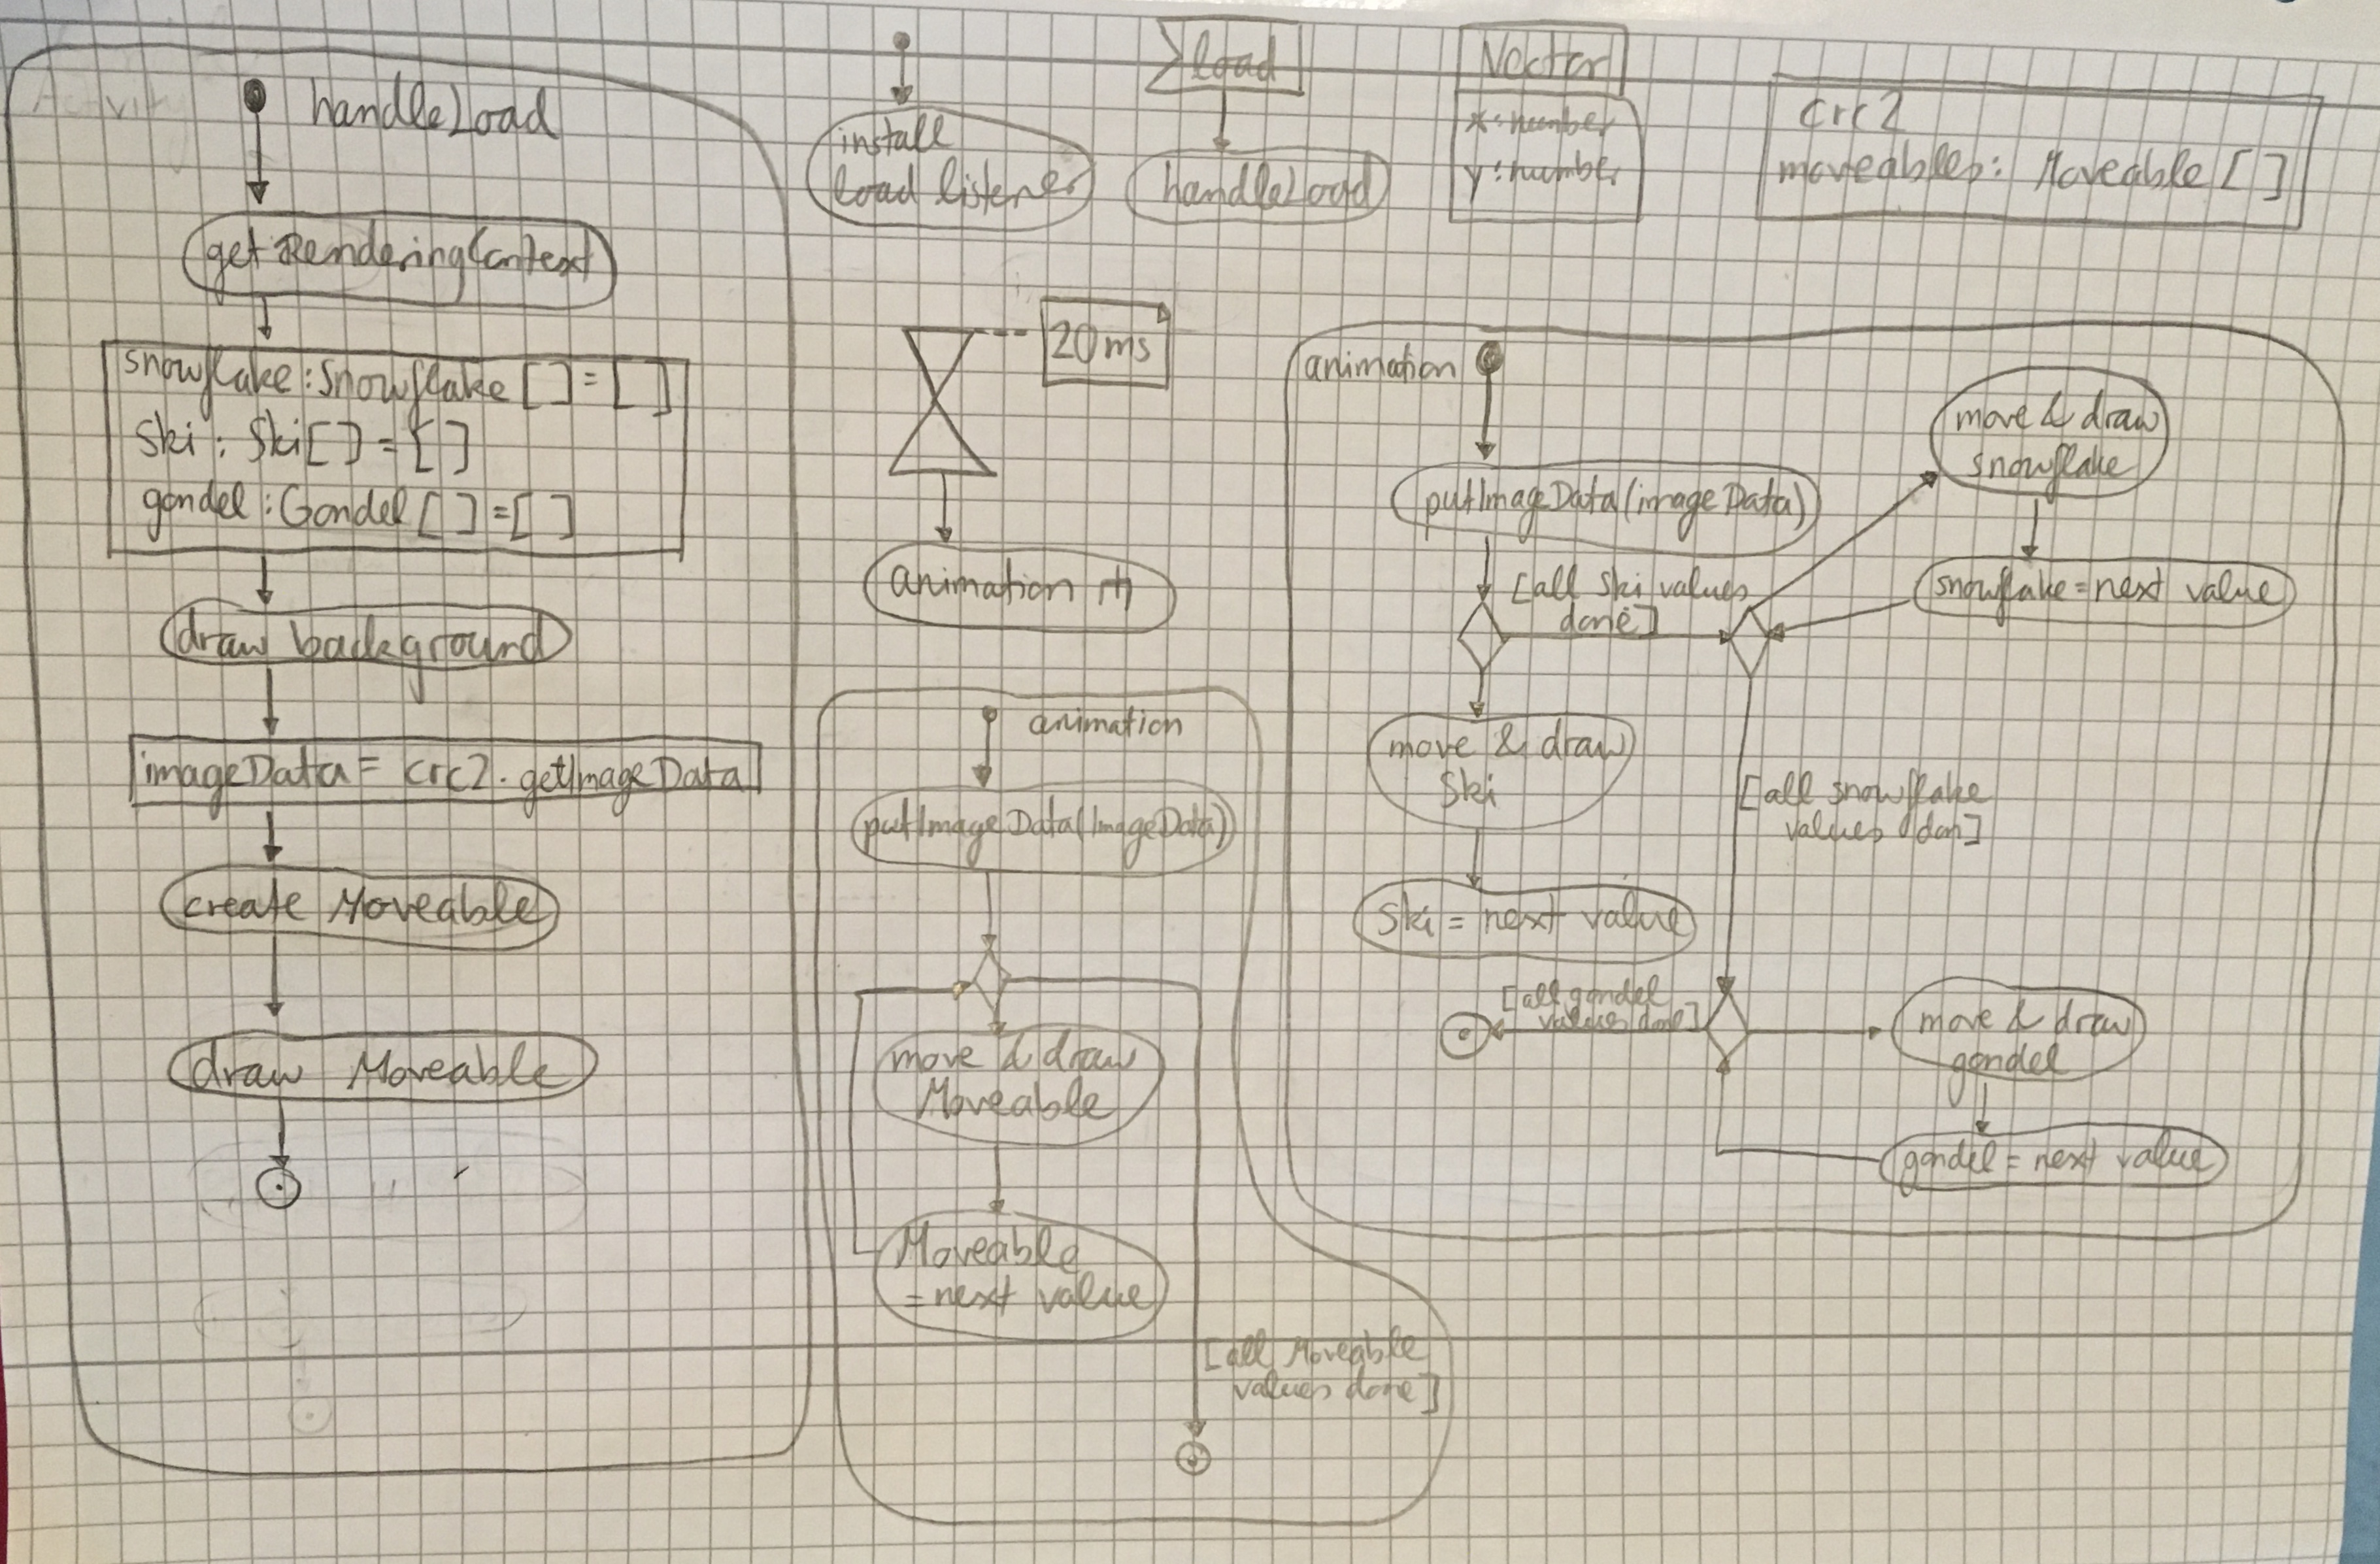 Activity
handleLoad
getRenderingContext
snowflake : Snowflake [ ] = [ ]
Ski : Ski [ ] = [ ]
gondel : Gondel [ ] = [ ]
draw background
imageData = crc2. getImageData
create Moveable
draw Moveable
install
load listener
load
handleLoad
Vector
x : number
y : number
crc2
moveables : Moveable [ ]
20 ms
animation
animation
putImageData(ImageData)
move & draw
Moveable
Moveable
= next value
[all Moveable
values done]
animation
putImageData(imageData)
[all Ski values
done]
move & draw
Ski
Ski = next value
move & draw
snowflake
snowflake = next value
[all snowflake
values don]
[all gondel
values done]
move & draw
gondel
gondel = next value